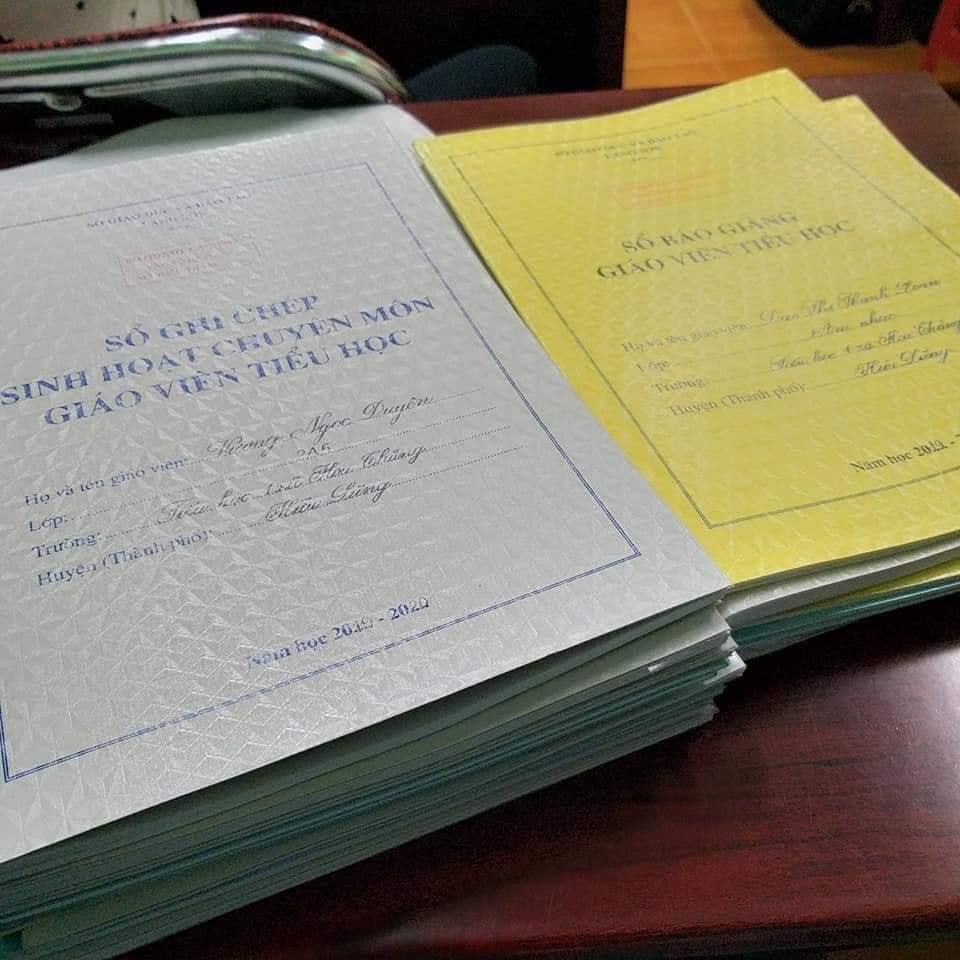 SỞ GIÁO DỤC VÀ ĐÀO TẠO
LẠNG SƠN
SỔ GHI CHÉP
SINH HOẠT CHUYÊN MÔN
GIÁO VIÊN TIỂU HỌC
Họ và tên giáo viên: Vương Ngọc Duyên
Lớp: 2A5
Trường: Tiểu học 1 xã Hữu Lũng
Huyện (Thành phố): Hữu Lũng
Năm học 2019 - 2020
SỞ GIÁO DỤC VÀ ĐÀO TẠO
LẠNG SƠN
SỔ BÁO GIẢNG
GIÁO VIÊN TIỂU HỌC
Họ và tên giáo viên: Thị Thanh Loan
Lớp: Âm nhạc
Trường: Tiểu học 1 xã
Huyện (Thành phố): Hữu Lũng
Năm học 2019 -